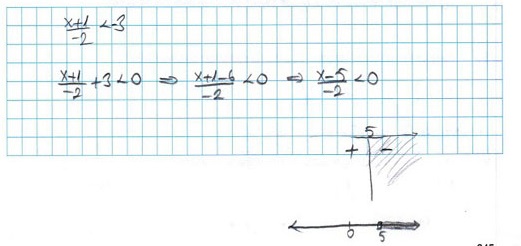 x+1/-2 <-3
x+1/-2 +3<0 ⇒ x+1-6/-2 <0 ⇒ x-5/-2 <0
5
+ -
0 5